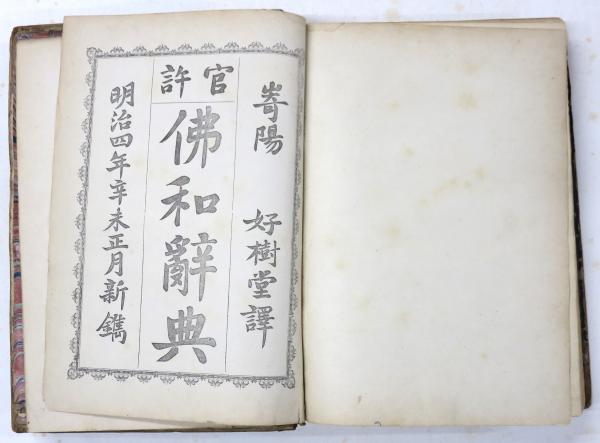 官許
嵜陽 好樹堂譯
佛和辭典
明治四年辛未正月新鐫